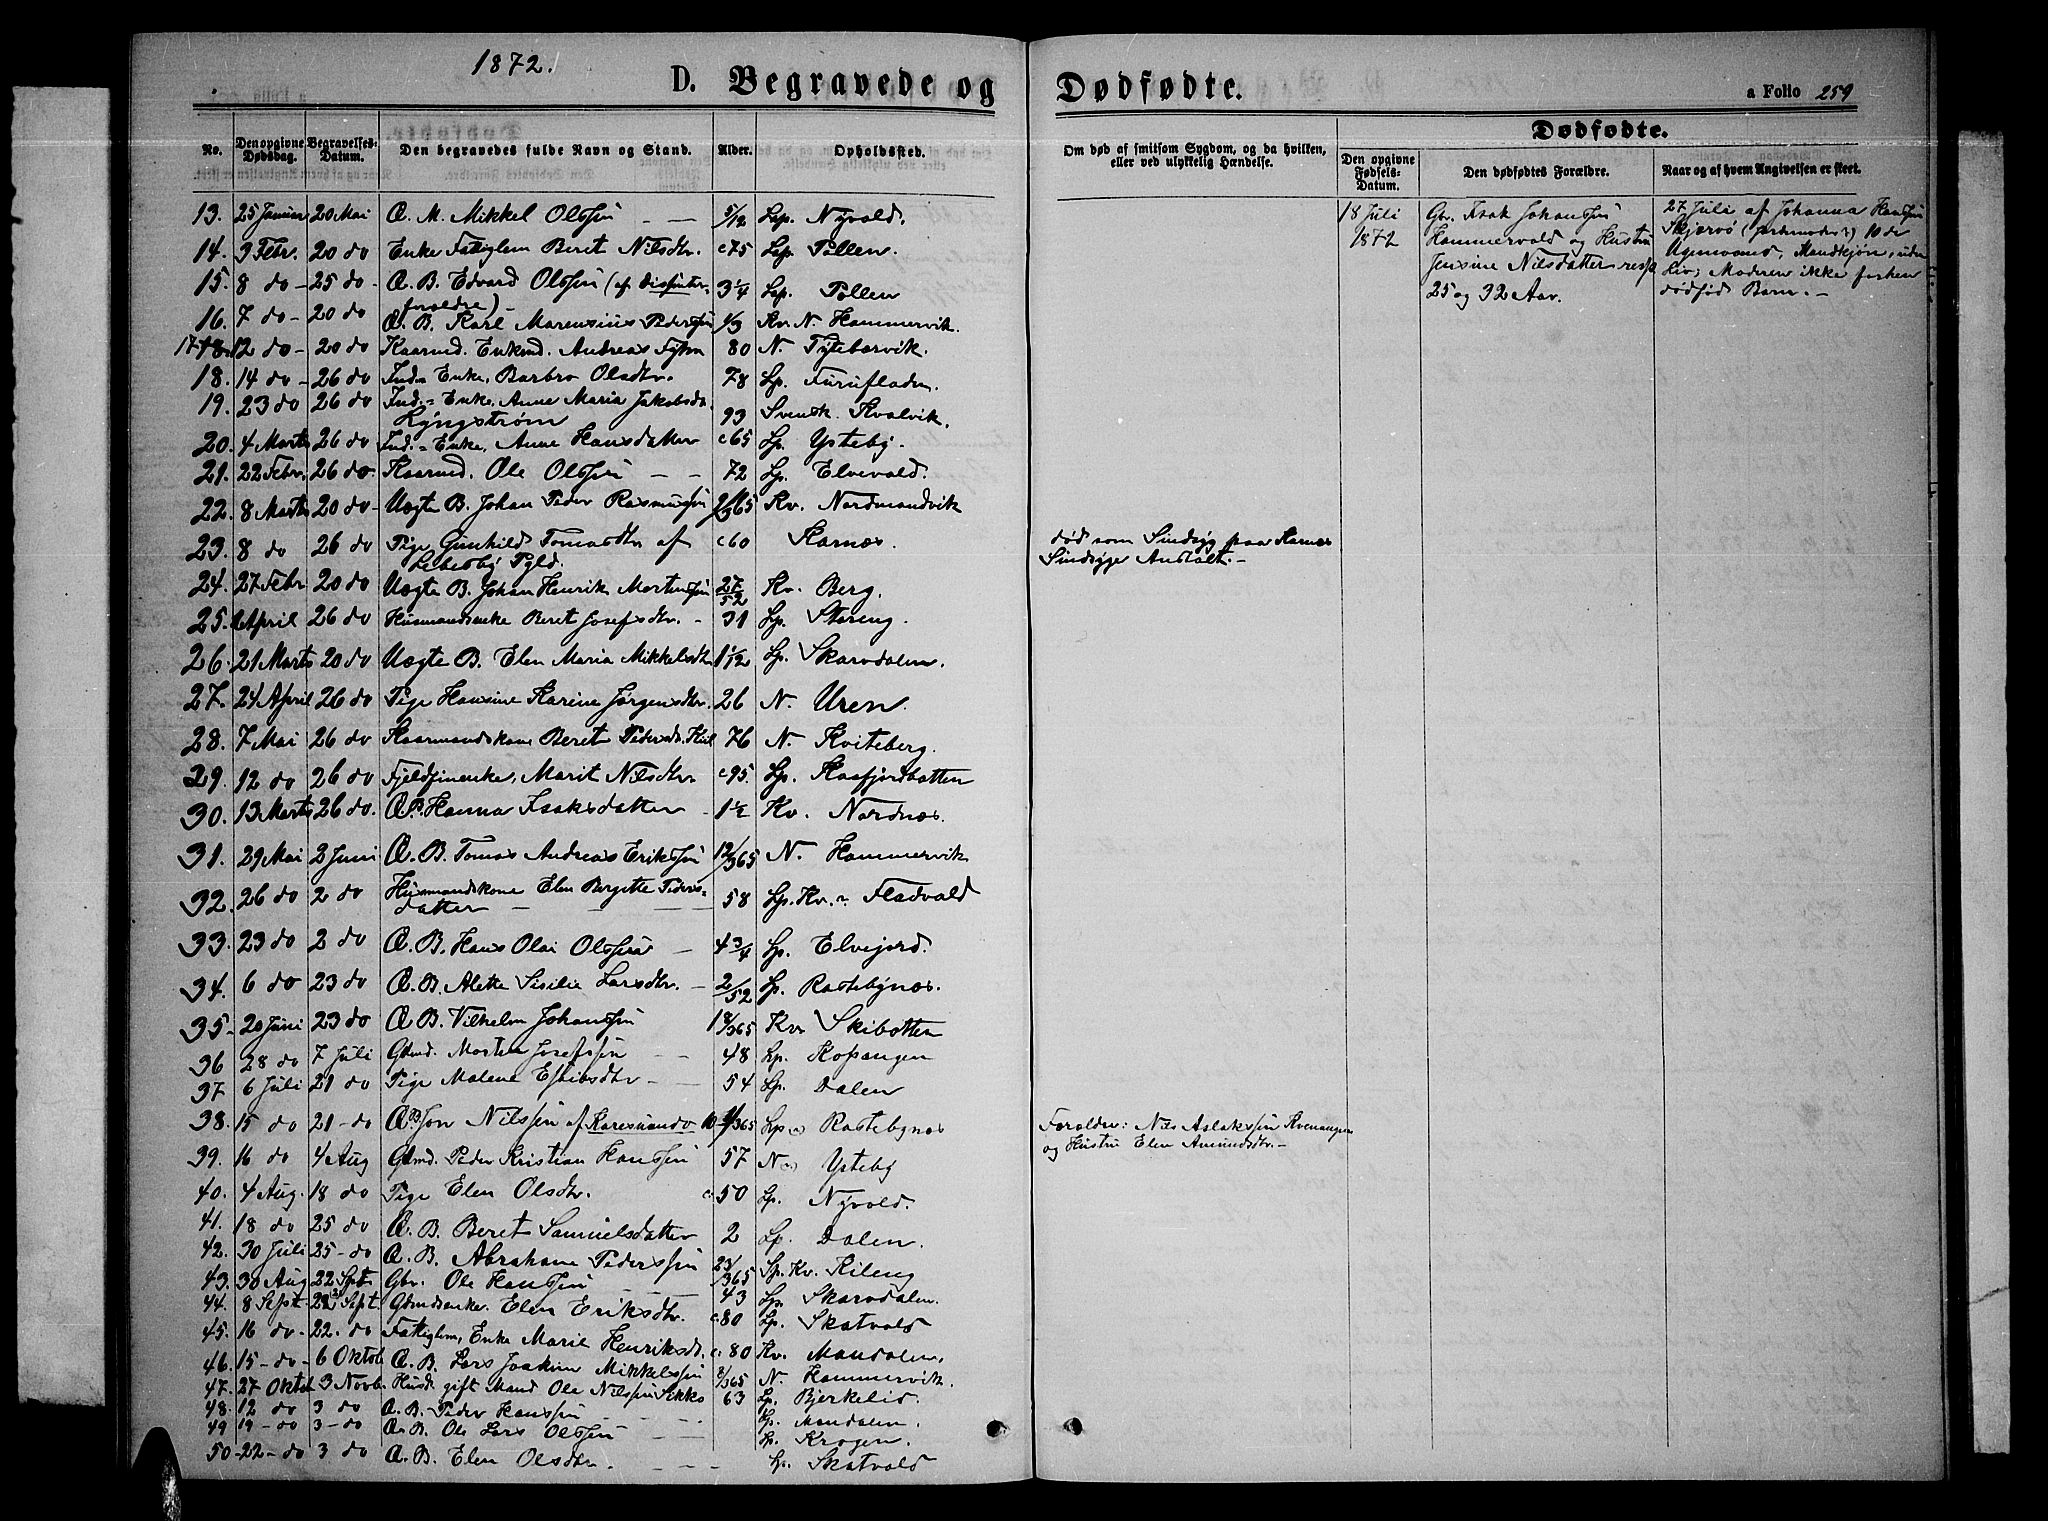 1872.
D. Begravede og
Dødfødte.
a Folio 259
No.
Den opgivne Dødsdag.
Begravelses-Datum.
Den begravedes fulde Navn og Stand.
Alder.
Opholdssted.
Om død af smitsom Sygdom, og da hvilken, eller ved ulykkelig Hændelse.
Dødfødte.
Den opgivne Fødsels-Datum.
Den dødfødtes Forældre.
Naar og af hvem Angivelsen er skeet.
13. 25 Januar 20 Mai Æ. M. Mikkel Olssøn 5/12 Lp. Nyvold.
14. 3 Febr. 20 do Enke Fattiglem Beret Nilsdtr. c75 Lp. Pollen.
15. 8 do 25 do Æ. B. Edvard Olssøn (af dissenter-
forældre) 3 1/4 Lp. Pollen
16. 7 do 20 do Æ. B. Karl Marensius Pederssøn 1/3 Kv. N. Hammervik.
17 12 do 20 do Kaarmd. Enkmd. Andreas 80 N. Tytebærvik.
18. 14 do 26 do Ind. Enke, Barbro Olsdtr. 78 Lp. Furufladen.
19. 23 do 26 do Ind. Enke, Anne Maria Jakobsdtr.
Lyngstrøm 93 Svensk. Kvalvik.
20. 4 Marts 26 do Ind. Enke, Anne Hansdatter c65 Lp. Ysteby.
21. 22 Febr. 26 do Kaarmd. Ole Olssøn 72 Lp. Elvevold.
22. 8 Marts 20 do Uægte B. Johan Peder Rasmussøn 2/365 Kv. Nordmandvik
23. 8 do 26 do Pige Gunhild Tomasdtr af
Lebesby Pgld. c60 Karnæs.
død som Sindsyg paa Karnæs
Sindsyge Anstalt.
24. 27 Febr 20 do Uægte B. Johan Henrik Mortenssøn 27/52 Kv. Berg.
25. April 26 do Husmandsenke Beret Josefsdtr. 31 Lp. Storeng.
26. 21 Marts 20 do Uægte B. Elen Maria Mikkelsdtr 1 1/12 Lp. Skarvdalen.
27. 24 April 26 do Pige Hansine Karine Jørgensdtr. 26 N. Uren.
28. 7 Mai 26 do Kaarmandskone Beret Pedersdtr. 76 N. Kviteberg.
29. 12 do 26 do Fjeldfinenke, Marit Nilsdtr c95. Lp. Kaafjordbotten
30. 13 Marts 26 do. Æ.P. Hanna Isaksdatter 1 1/2 Kv. Nordnæs.
31. 29 Mai 2 Juni Æ. B. Tomas Andreas Erikssøn 12/365 N. Hammervik
32. 26 do 2 do Husmandskone Elen Bergitte Peders-
datter 58 Lp. Kv. Fladvold
33. 23 do 2 do Æ. B. Hans Olai Olssøn 4 3/4 Lp. Elvejord.
34. 6 do 23 do Æ. B. Alette Sisilie Larsdtr. 2/52 Lp. Rastebynæs.
35. 20 Juni 23 do Æ B. Vilhelm Johanssøn 18/365 Kv. Skibotten
36 28 do 7 Juli Gbmd. Morten Josefssøn 48 Lp. Kopangen
37 6 Juli 21 do Pige Malene Esbensdtr 54 Lp. Dalen
38. 15 do 21 do Æ.B. Jon Nilssøn af Karesuando Lp. Rastebynæs
Forældre: Nils Aslakssøn Kvenangen
og Hustru Elen Amundsdtr.
39. 16 do 4 Aug Gbmd. Peder Kristian Hanssøn 57 N. Ysteby
40. 4 Aug. 18 do Pige Elen Olsdtr. c.50 Lp. Nyvold.
41. 18 do 25 do Æ. B. Beret Samuelsdatter 2 Lp. Dalen.
42. 30 Juli 25 do Æ. B. Abraham Pederssøn 23/365 Lp. Kv. Rileng
43. 30 Aug 22 Spt. Gbr. Ole Hanssøn 43 Lp. Skarvdalen.
44. 8 Sept. 22 Sept. Gbmdsenke. Elen Eriksdtr. c.80 Lp. Skatvold
45. 16 do 22. do Fattiglem, Enke Marie Henriksdtr. c.80 Kv. Mandalen.
46. 15 do 6 Oktob Æ. B. Lars Joakim Mikkelssøn 8/365 N. Hammervik.
47. 27 Oktob 3 Novb. Husb. gift Mand Ole Nilssøn Sikko 63 Lp. Bjerkelid.
48. 12 do 3 do Æ. B. Peder Hanssøn Lp. Mandalen.
49 19 do 3 do Æ. B. Ole Lars Olssøn Lp. Krogen.
50 22 do 3 do Æ. B. Elen Olsdtr. Lp. Skatvold
18 Juli
1872
Gbr. Isak Johanssøn
Hammervold og Hustru
Jensine Nilsdatter resp.
25 og 32 Aar.
27 Juli af Johanna
Skjervø (jordmoder) 10 de
Ugersvand, Mandkjøn, uden
Liv, Moderen ikke forhen
dødfød Barn.